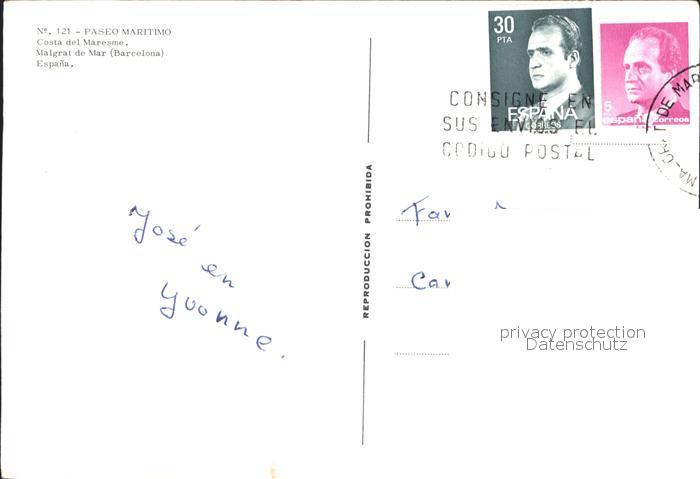 Nº. 121 - PASEO MARITIMO
Costa del Maresme.
Malgrat de Mar (Barcelona)
España.
30
PTA
ESPAÑA
CORREOS
5
españa correos
CONSIGNE EN
SUS ENVIOS EL
CODIGO POSTAL
DE MAR
REPRODUCCION PROHIBIDA
José en
Yvonne.
Fa
Ca
privacy protection
Datenschutz